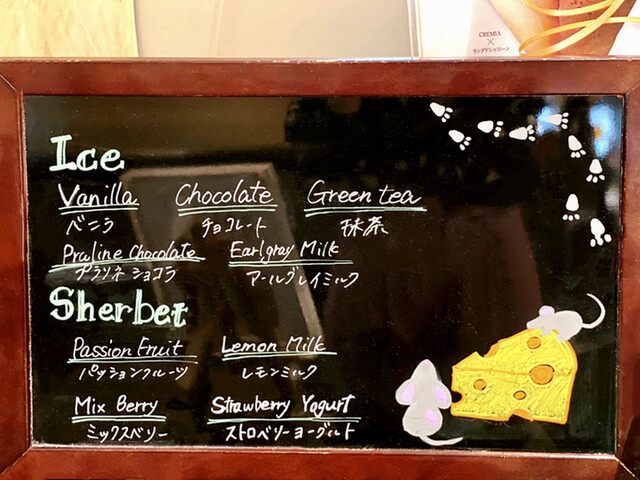 CREMIA
×
ラングドシャコーン
Ice
Vanilla Chocolate Green tea
バニラ チョコレート 抹茶
Praline Chocolate Earlgray Milk
プラリネ ショコラ アールグレイミルク
Sherbet
Passion Fruit Lemon Milk
パッションフルーツ レモンミルク
Mix Berry Strawberry Yogurt
ミックスベリー ストロベリーヨーグルト